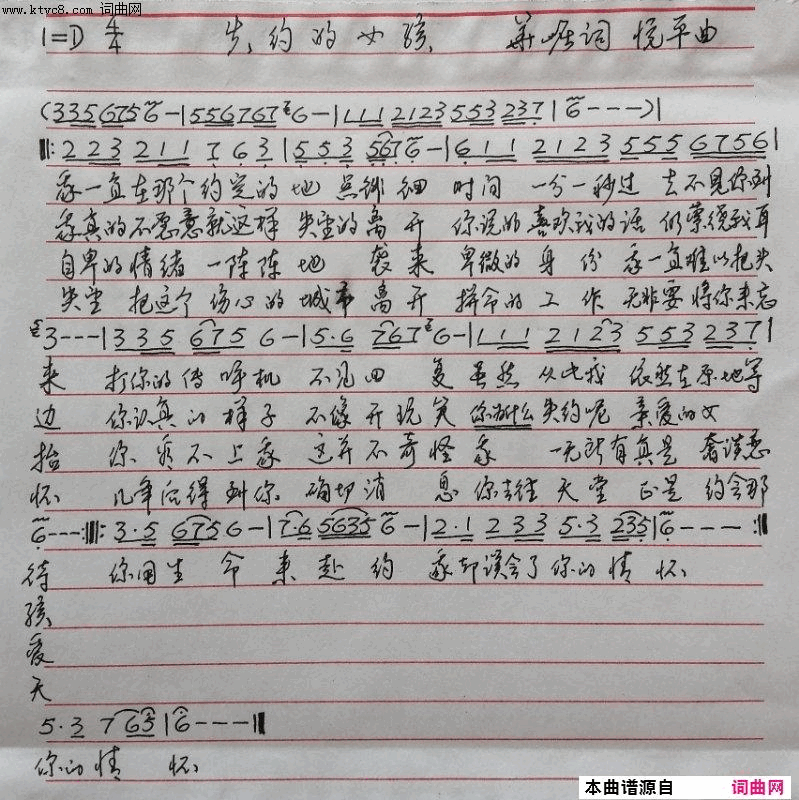 www.ktvc8.com 词曲网
1=D 4/4 失约的女孩 华崛词 悦平曲
(335 6756-|556767 6-|111 2123 553 237|6---)|
‖:223 211 763|553 5676-|611 2123 555 6756|
我一直在那个约定的地点徘徊 时间一分一秒过去不见你到
我真的不愿意就这样失望的离开 你说的喜欢我的话仍萦绕我耳
自卑的情绪一阵阵地袭来 卑微的身份我一直难以把头
失望把这个伤心的城市离开 拼命的工作无非要将你来忘
3---|335 675 6-|5·6 767 6-|111 2123 553 237|
来 打你的传呼机不见回复 虽然从此我依然在原地等
边 你认真的样子不像开玩笑 你为什么失约呢亲爱的女
抬 你看不上我这并不奇怪 我一无所有真是奢谈恋
怀 几年后得到你确切消息 你去往天堂正是约会那
6---:‖:3·5 675 6-|7·6 5635 6-|2·1 233 5·3 235|6---:‖
待 你用生命来赴约 我却误会了你的情怀
孩
爱
天
5·3 765|6---‖
你的情怀
本曲谱源自 词曲网